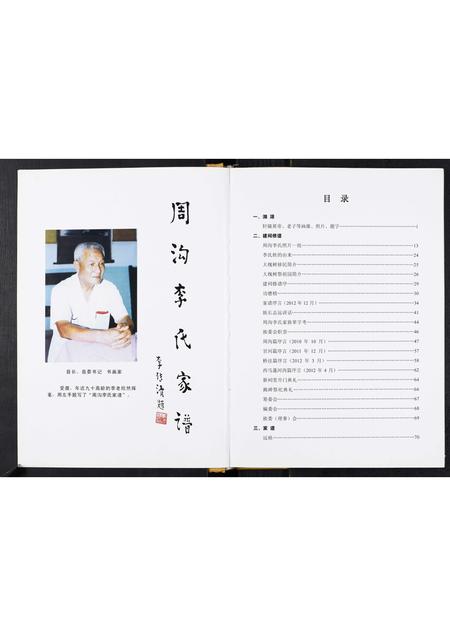 周沟李氏家谱
李传濆题
县长、县委书记 书画家
受邀，年近九十高龄的李老欣然挥
毫，用左手题写了“周沟李氏家谱”。
目 录
一、渊 源
轩辕黄帝、老子等画像、照片、题字 1
二、建祠修谱
周沟李氏照片一组 13
李氏姓的由来 24
大槐树移民简介 25
大槐树祭祖园简介 26
建祠修谱序 29
功德榜 30
家谱序言（2012 年 12 月） 34
族长总运讲话 41
周沟李氏家族辈字考 44
族委会职责 46
周沟篇序言（2010 年 10 月） 47
官河篇序言（2011 年 12 月） 57
桥洼篇序言（2012 年 3 月） 58
西马蓬河西篇序言（2012 年 4 月） 62
祭祠堂开门典礼 64
跪碑祭祀典礼 64
筹委会 64
编委会 64
族委（理事）会 64
三、家 谱
远祖 70